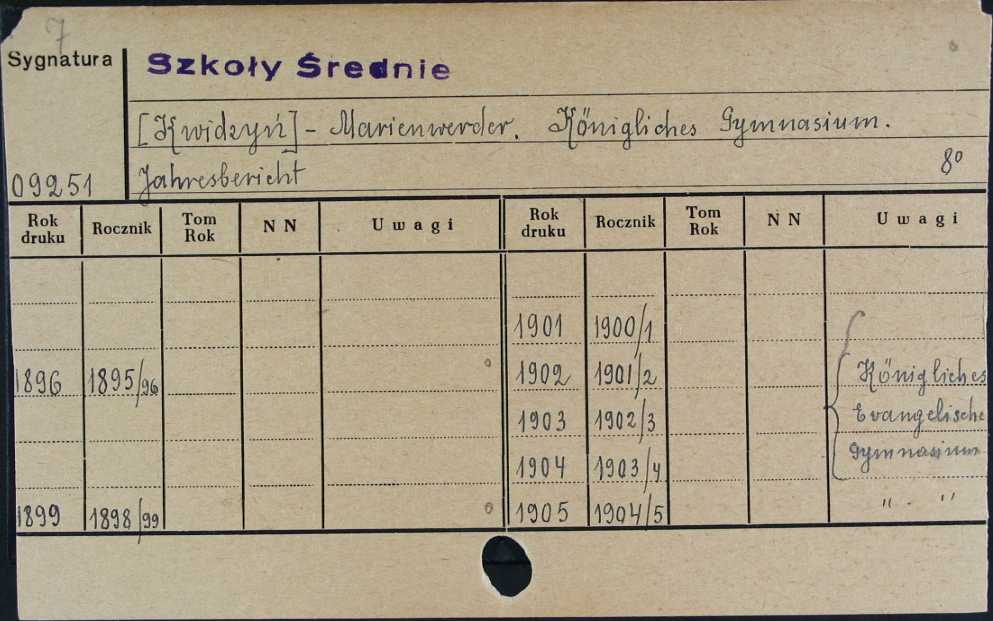 7
Sygnatura
Szkoły Średnie
[Kwidzyń] - Marienwerder. Königliches Gymnasium.
09251 Jahresbericht 8°
Rok druku Rocznik Tom Rok NN Uwagi Rok druku Rocznik Tom Rok NN Uwagi
1901 1900/1
1896 1895/96 1902 1901/2 Königliches
1903 1902/3 Evangelische
1904 1903/4 Gymnasium
1899 1898/99 1905 1904/5 " - "